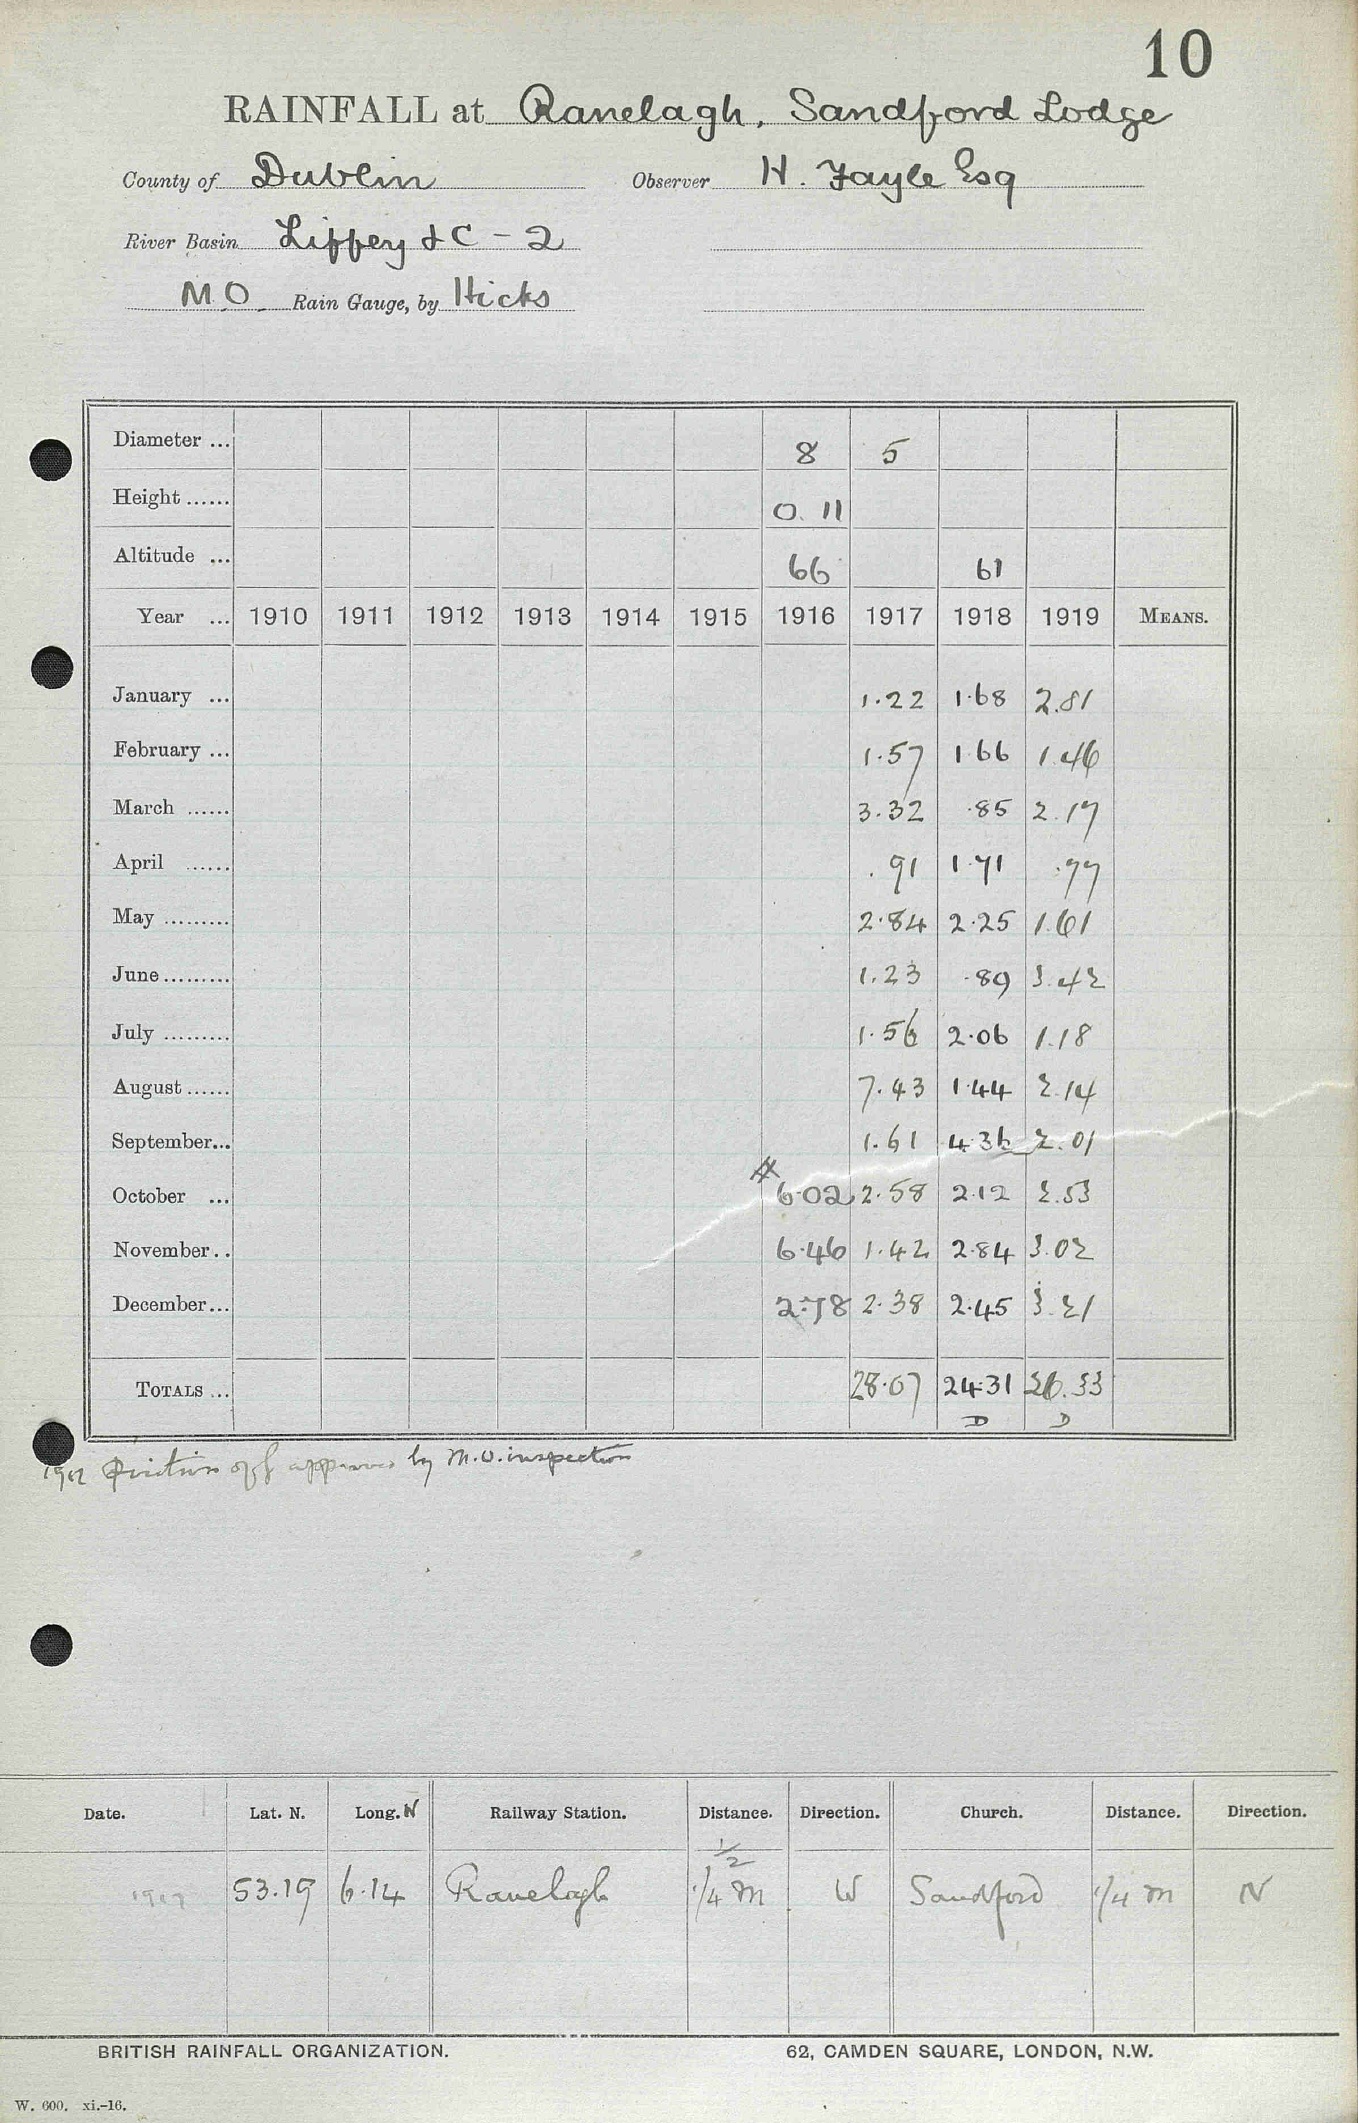 10
RAINFALL at Ranelagh, Sandford Lodge
County of Dublin Observer H. Fayle Esq
River Basin Liffey & C - 2
M.O. Rain Gauge, by Hicks
Diameter ... 8 5
Height ...... 0. 11
Altitude ... 66 61
Year ... 1910 1911 1912 1913 1914 1915 1916 1917 1918 1919 MEANS.
January ... 1.22 1.68 2.81
February ... 1.57 1.66 1.46
March ...... 3.32 .85 2.17
April ...... .91 1.71 .77
May ......... 2.84 2.25 1.61
June ......... 1.23 .89 3.42
July ......... 1.56 2.06 1.18
August ...... 7.43 1.44 2.14
September... 1.61 4.36 2.01
October ... # 6.02 2.58 2.12 2.53
November .. 6.46 1.42 2.84 3.02
December... 2.78 2.38 2.45 3.21
TOTALS ... 28.07 24.31 26.33
D D
Position of approved by M.O. inspection
Date. Lat. N. Long. W Railway Station. Distance. Direction. Church. Distance. Direction.
1/2
1917 53.19 6.14 Ranelagh 1/4 m W Sandford 1/4 m N
BRITISH RAINFALL ORGANIZATION. 62, CAMDEN SQUARE, LONDON, N.W.
W. 600. xi.-16.